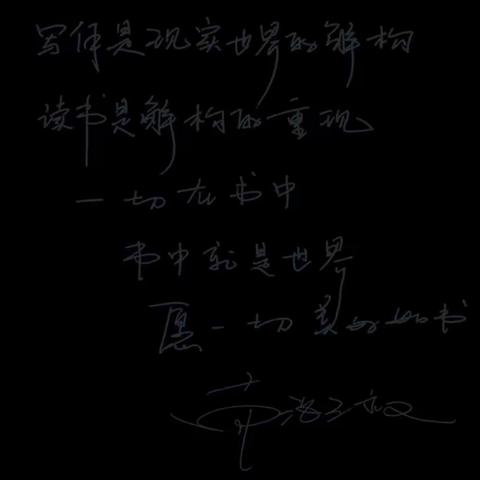 写作是现实世界的解构
读书是解构的重现
一切在书中
书中就是世界
愿一切美好如书